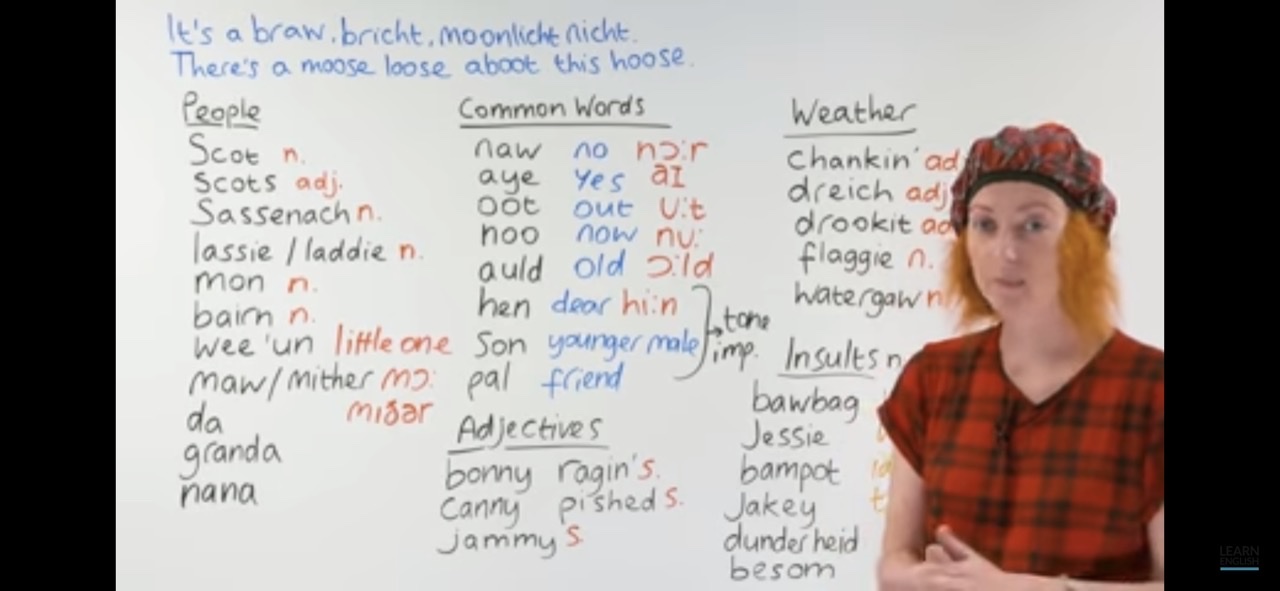 It's a braw, bricht, moonlicht nicht.
There's a moose loose aboot this hoose.
People
Scot n.
Scots adj.
Sassenach n.
lassie / laddie n.
mon n.
bairn n.
wee 'un little one
maw/mither mɔː
miðər
da
granda
nana
Common Words
naw no nɔːr
aye yes aɪ
oot out uːt
noo now nuː
auld old ɔːld
hen dear hiːn
son younger male
pal friend
tone
imp.
Adjectives
bonny ragin' s.
canny pished s.
jammy s.
Weather
chankin' ad
dreich adj
drookit ad
flaggie n.
watergaw n
Insults n
bawbag
Jessie
bampot
Jakey
dunderheid
besom
LEARN
ENGLISH